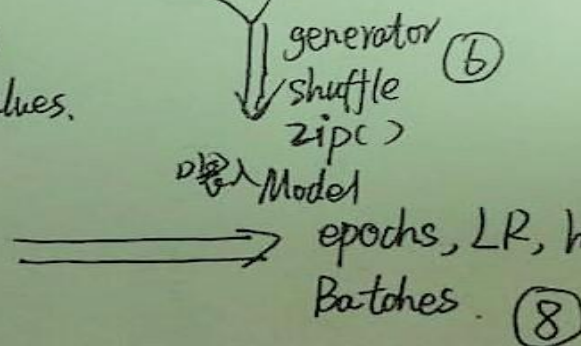 generator ⑥
lues.
shuffle
zip()
喂入 Model
epochs, LR, h
Batches. ⑧